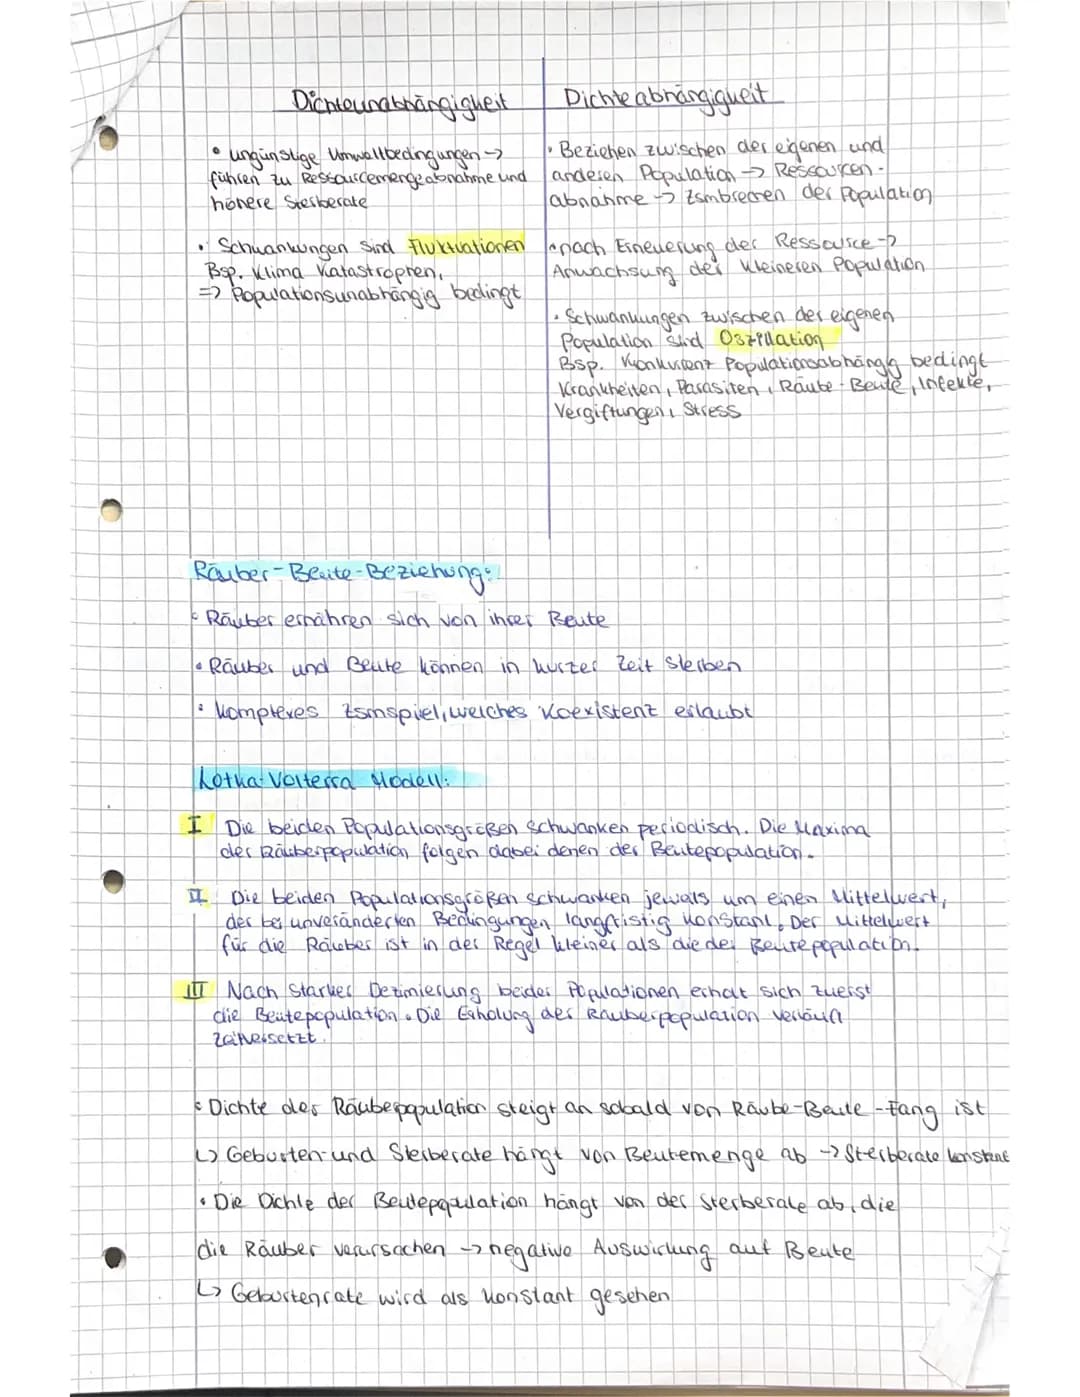 Dichteunabhängigkeit
• ungünstige Umweltbedingungen ->
führen zu Ressourcemengeabnahme und
höhere Sterberate
• Schwankungen sind Fluktuationen
Bsp. Klima Katastrophen,
=> Populationsunabhängig bedingt
Dichteabhängigkeit
• Beziehen zwischen der eigenen und
anderen Population -> Ressourcen-
abnahme -> Zsmbrechen der Population
• nach Erneuerung der Ressource ->
Anwachsung der kleineren Population
• Schwankungen zwischen der eigenen
Population sind Oszillation
Bsp. Konkurrenz Populationsabhängig bedingt
Krankheiten, Parasiten, Räube-Beute, Infekte,
Vergiftungen, Stress
Räuber-Beute-Beziehung:
• Räuber ernähren sich von ihrer Beute
• Räuber und Beute können in kurzer Zeit sterben
• komplexes Zsmspiel, welches Koexistenz erlaubt
Lotka-Volterra Modell:
I Die beiden Populationsgrößen schwanken periodisch. Die Maxima
der Räuberpopulation folgen dabei denen der Beutepopulation.
II Die beiden Populationsgrößen schwanken jeweils um einen Mittelwert,
der bei unveränderten Bedingungen langfristig konstant. Der Mittelwert
für die Räuber ist in der Regel kleiner als die der Beutepopulation.
III Nach starker Dezimierung beider Populationen erholt sich zuerst
die Beutepopulation. Die Erholung der Räuberpopulation verläuft
zeitversetzt.
• Dichte der Räuberpopulation steigt an sobald von Räube-Beute-Fang ist
↳ Geburten- und Sterberate hängt von Beutemenge ab -> Sterberate konstant
• Die Dichte der Beutepopulation hängt von der Sterberate ab, die
die Räuber verursachen -> negative Auswirkung auf Beute
↳ Geburtenrate wird als konstant gesehen